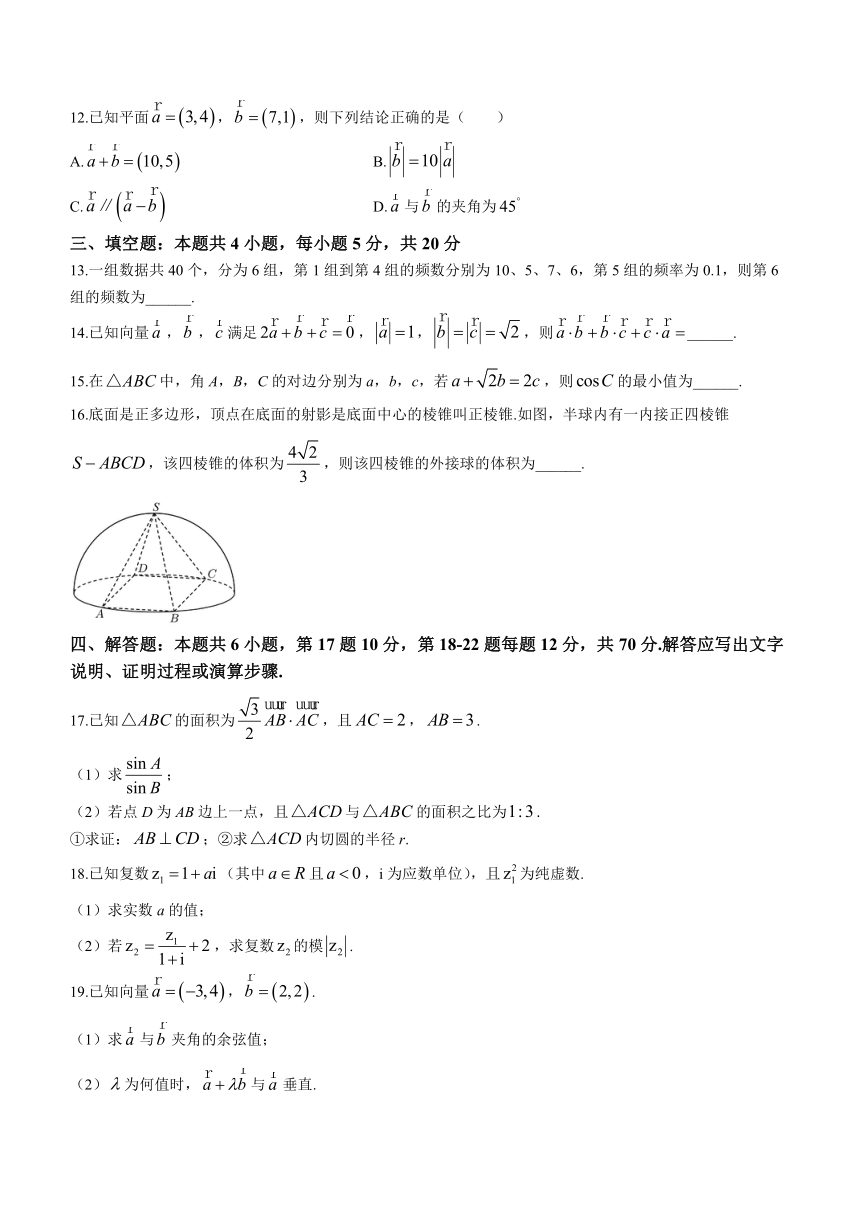 12.已知平面a⃗=(3,4),b⃗=(7,1),则下列结论正确的是( )
A.a⃗+b⃗=(10,5) B.|b⃗|=10|a⃗|
C.a⃗∥(a⃗−b⃗) D.a⃗与b⃗的夹角为45°
三、填空题：本题共4小题，每小题5分，共20分
13.一组数据共40个，分为6组，第1组到第4组的频数分别为10、5、7、6，第5组的频率为0.1，则第6
组的频数为______.
14.已知向量a⃗，b⃗，c⃗满足2a⃗+b⃗+c⃗=0⃗，|a⃗|=1，|b⃗|=|c⃗|=√2，则a⃗·b⃗+b⃗·c⃗+c⃗·a⃗=______.
15.在△ABC中，角A，B，C的对边分别为a，b，c，若a+√2b=2c，则cosC的最小值为______.
16.底面是正多边形，顶点在底面的射影是底面中心的棱锥叫正棱锥.如图，半球内有一内接正四棱锥
S−ABCD，该四棱锥的体积为4√2/3，则该四棱锥的外接球的体积为______.
S
D
C
A
B
四、解答题：本题共6小题，第17题10分，第18-22题每题12分，共70分.解答应写出文字
说明、证明过程或演算步骤.
17.已知△ABC的面积为√3/2 AB⃗·AC⃗，且AC=2，AB=3.
（1）求sin A/sin B；
（2）若点D为AB边上一点，且△ACD与△ABC的面积之比为1:3.
①求证：AB⊥CD；②求△ACD内切圆的半径r.
18.已知复数z₁=1+ai（其中a∈R且a<0，i为应数单位），且z₁²为纯虚数.
（1）求实数a的值；
（2）若z₂=z₁/(1+i)+2，求复数z₂的模|z₂|.
19.已知向量a⃗=(−3,4)，b⃗=(2,2).
（1）求a⃗与b⃗夹角的余弦值；
（2）λ为何值时，a⃗+λb⃗与a⃗垂直.